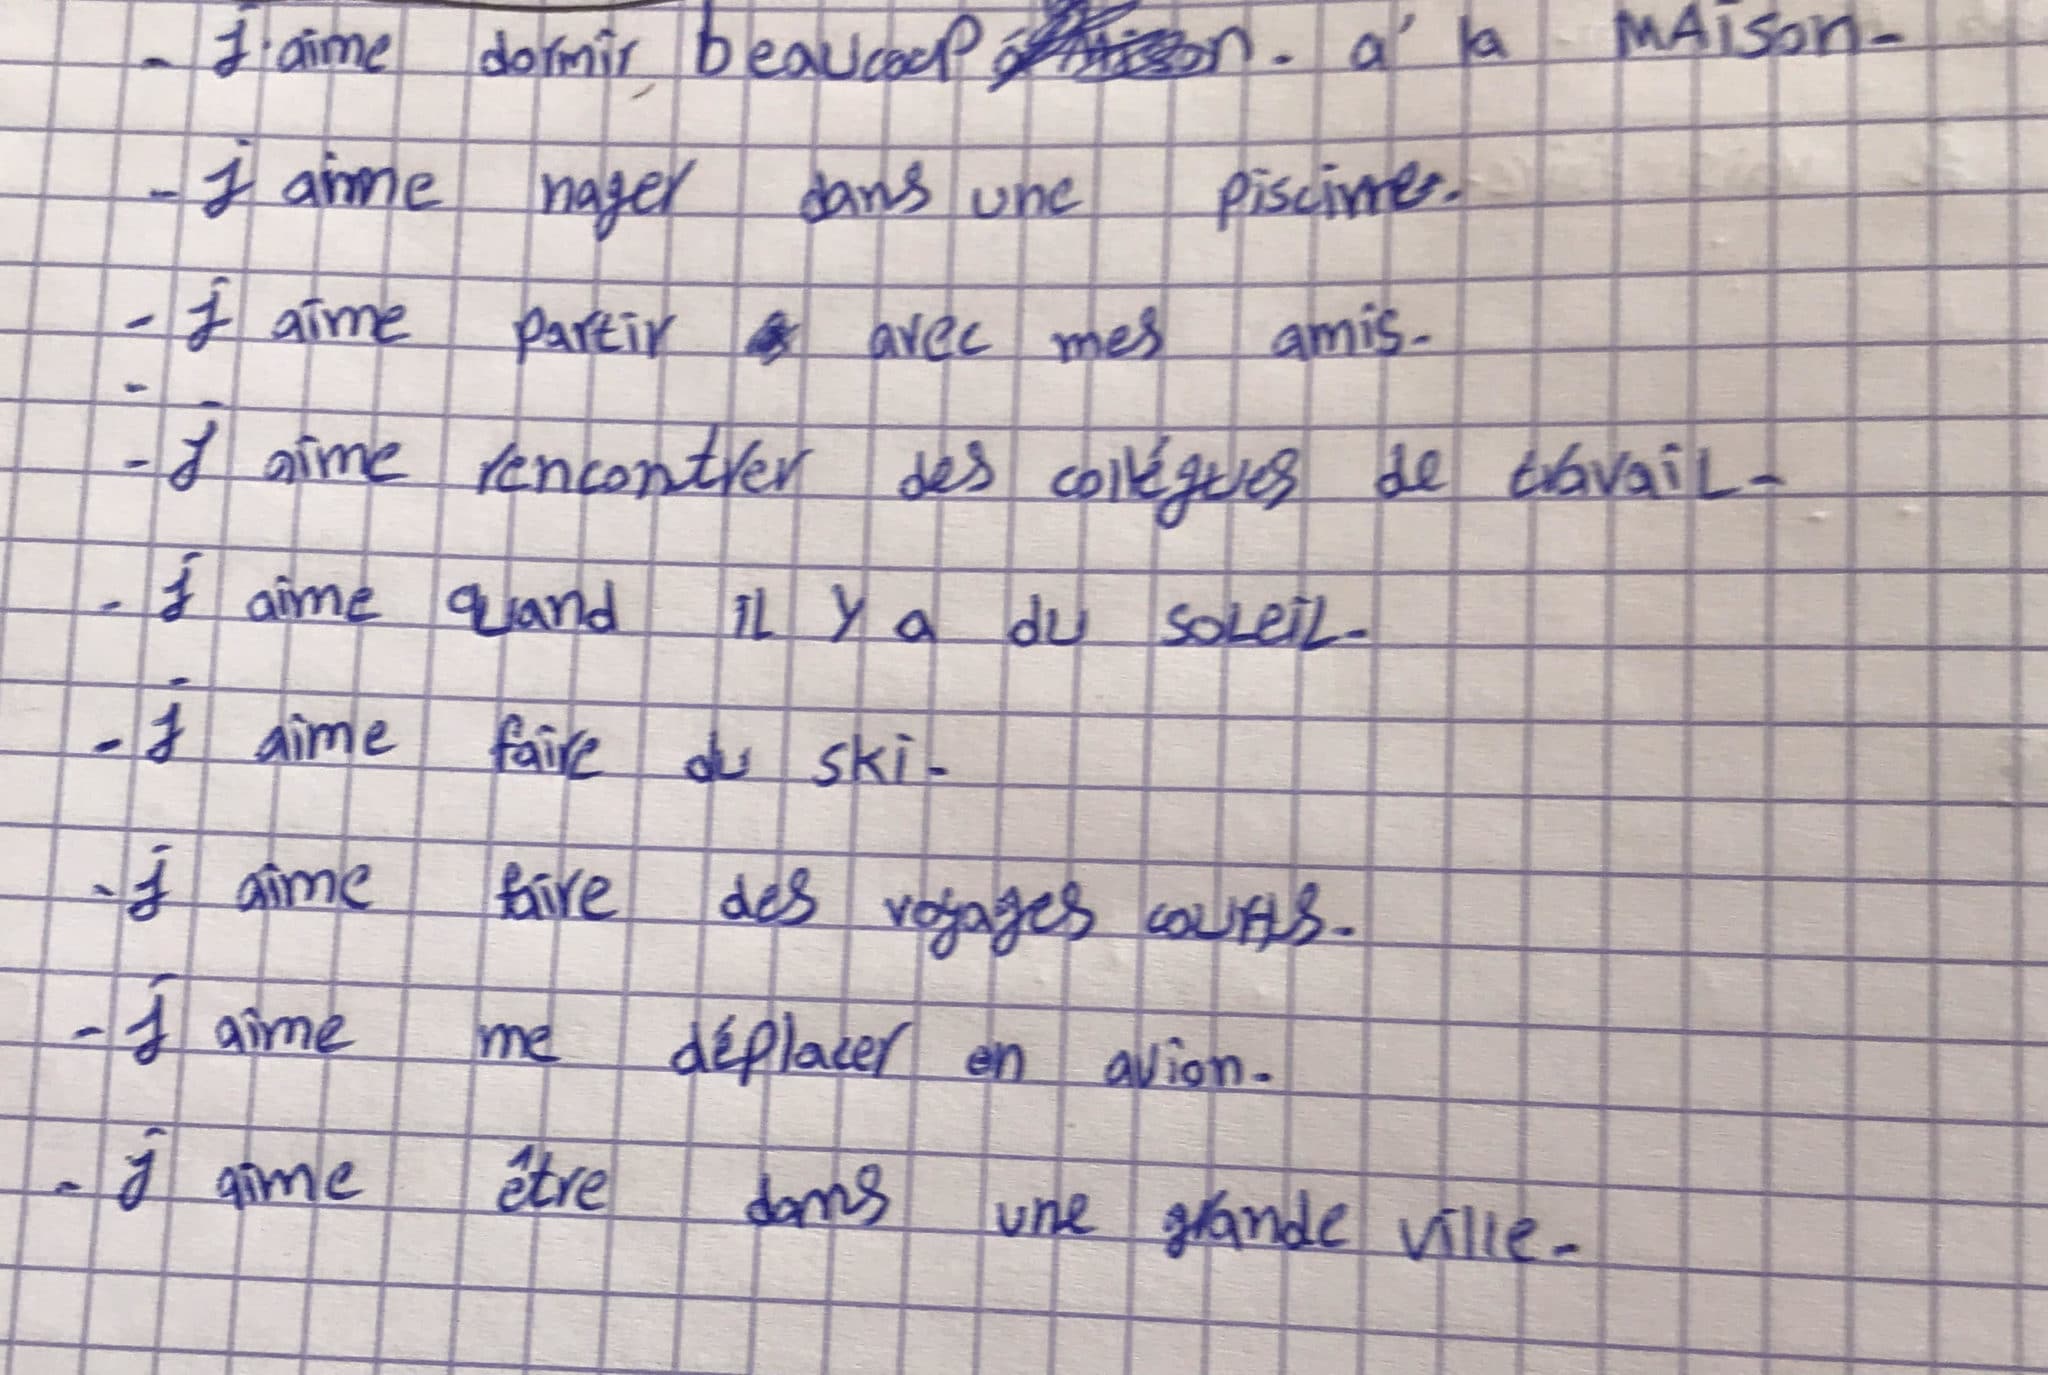 - J'aime dormir beaucoup à la MAison-
- J aime nager dans une piscine.
- J aime partir avec mes amis-
- J aime rencontrer des collégues de travaiL-
- J aime quand iL y a du soLeiL-
- J aime faire du ski-
- J aime faire des voyages courts-
- J aime me déplacer en avion-
- J aime être dans une grande ville-